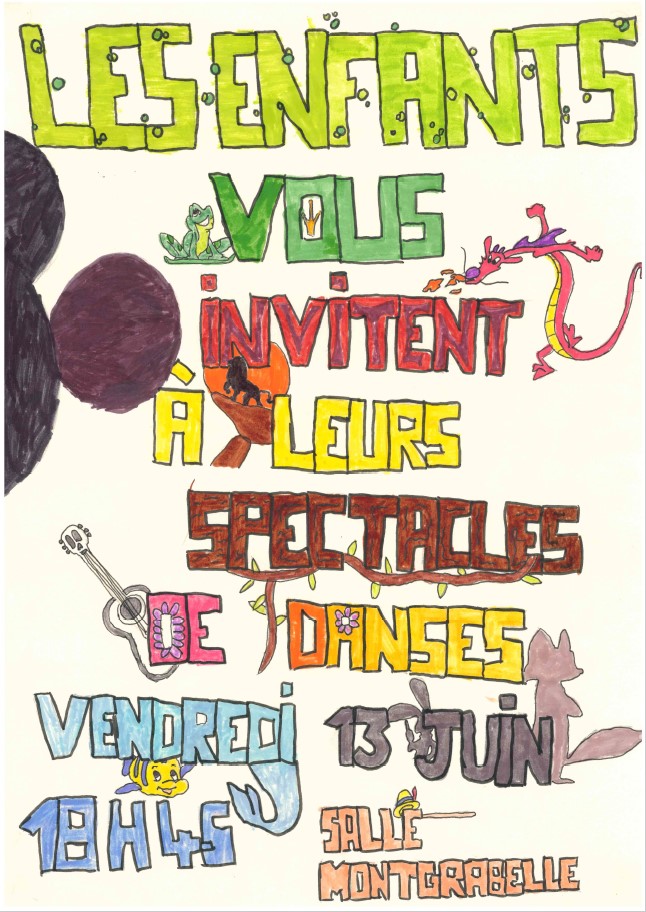 LES ENFANTS
VOUS
iNViTENT
À LEURS
SPECTACLES
DE DANSES
VENDREDi 13 JUiN
18H45
SALLE
MONTGRABELLE